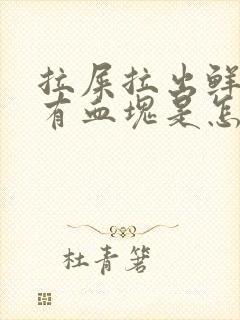 拉屎拉出鲜
有血块是怎
杜青箬